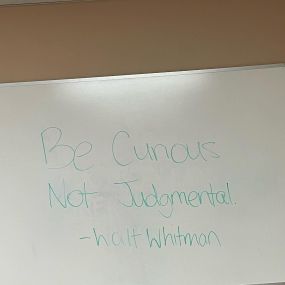 Be Curious
Not Judgmental.
-Walt Whitman